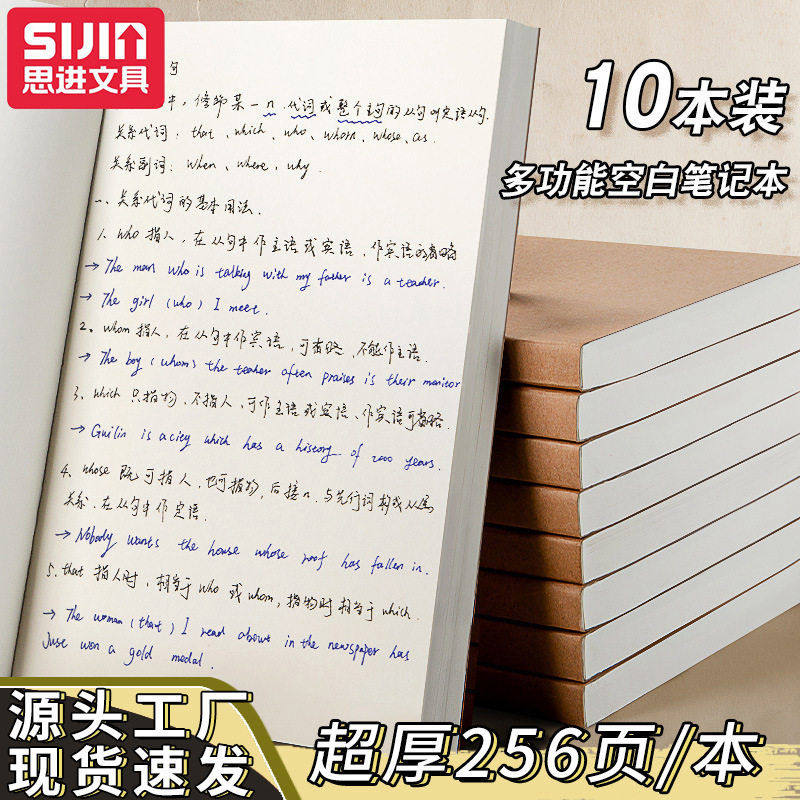 SIJIN
思进文具
10本装
多功能空白笔记本
句
中，修饰某一n.代词或整个主句的从句叫定语从句.
关系代词：that、which、who、whom、whose、as.
关系副词：when、where、why.
一、关系代词的基本用法.
1、who 指人，在从句中作主语或宾语，作宾语可省略
→ The man who is talking with my father is a teacher.
→ The girl (who) I meet.
2、whom 指人，在从句中作宾语，可省略，不能作主语.
→ The boy (whom) the teacher often praises is their monitor
3、which 只指物、不指人，可作主语或宾语、作宾语可省略.
→ Guilin is a city which has a history of 2000 years.
4、whose 既可指人，也可指物，后接n.与先行词构成从属
关系，在从句中作定语.
→ Nobody wants the house whose roof has fallen in.
5、that 指人时，相当于 who 或 whom，指物时相当于 which.
→ The woman (that) I read about in the newspaper has
just won a gold medal.
源头工厂
现货速发
超厚256页/本